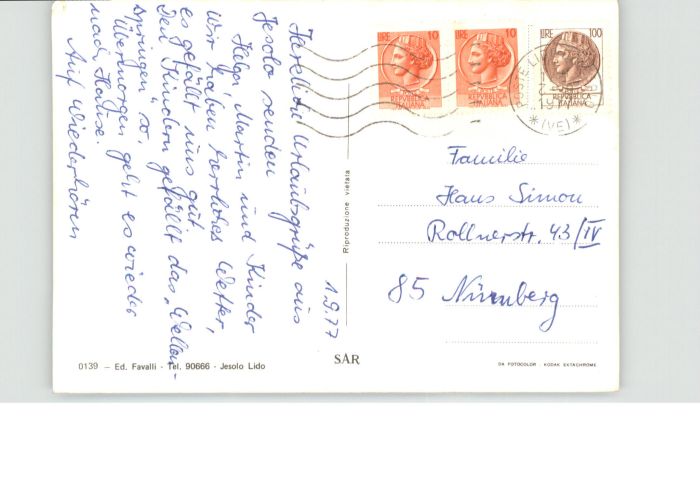 1.9.77
Herzliche Urlaubsgrüße aus
Jesolo senden
Helga, Martin und Kinder
Wir haben herrliches Wetter,
es gefällt uns gut.
Den Kindern gefällt das „Wellen-
springen" so,
Übermorgen geht es wieder
nach Hause.
Auf Wiederhören
LIRE 10
REPVBBLICA
ITALIANA
LIRE 10
REPVBBLICA
ITALIANA
LIRE 100
REPVBBLICA
ITALIANA
(VE)
Familie
Hans Simon
Rollnerstr. 43/IV
85 Nürnberg
Riproduzione vietata
0139 – Ed. Favalli - Tel. 90666 - Jesolo Lido
SAR
DA FOTOCOLOR - KODAK EKTACHROME